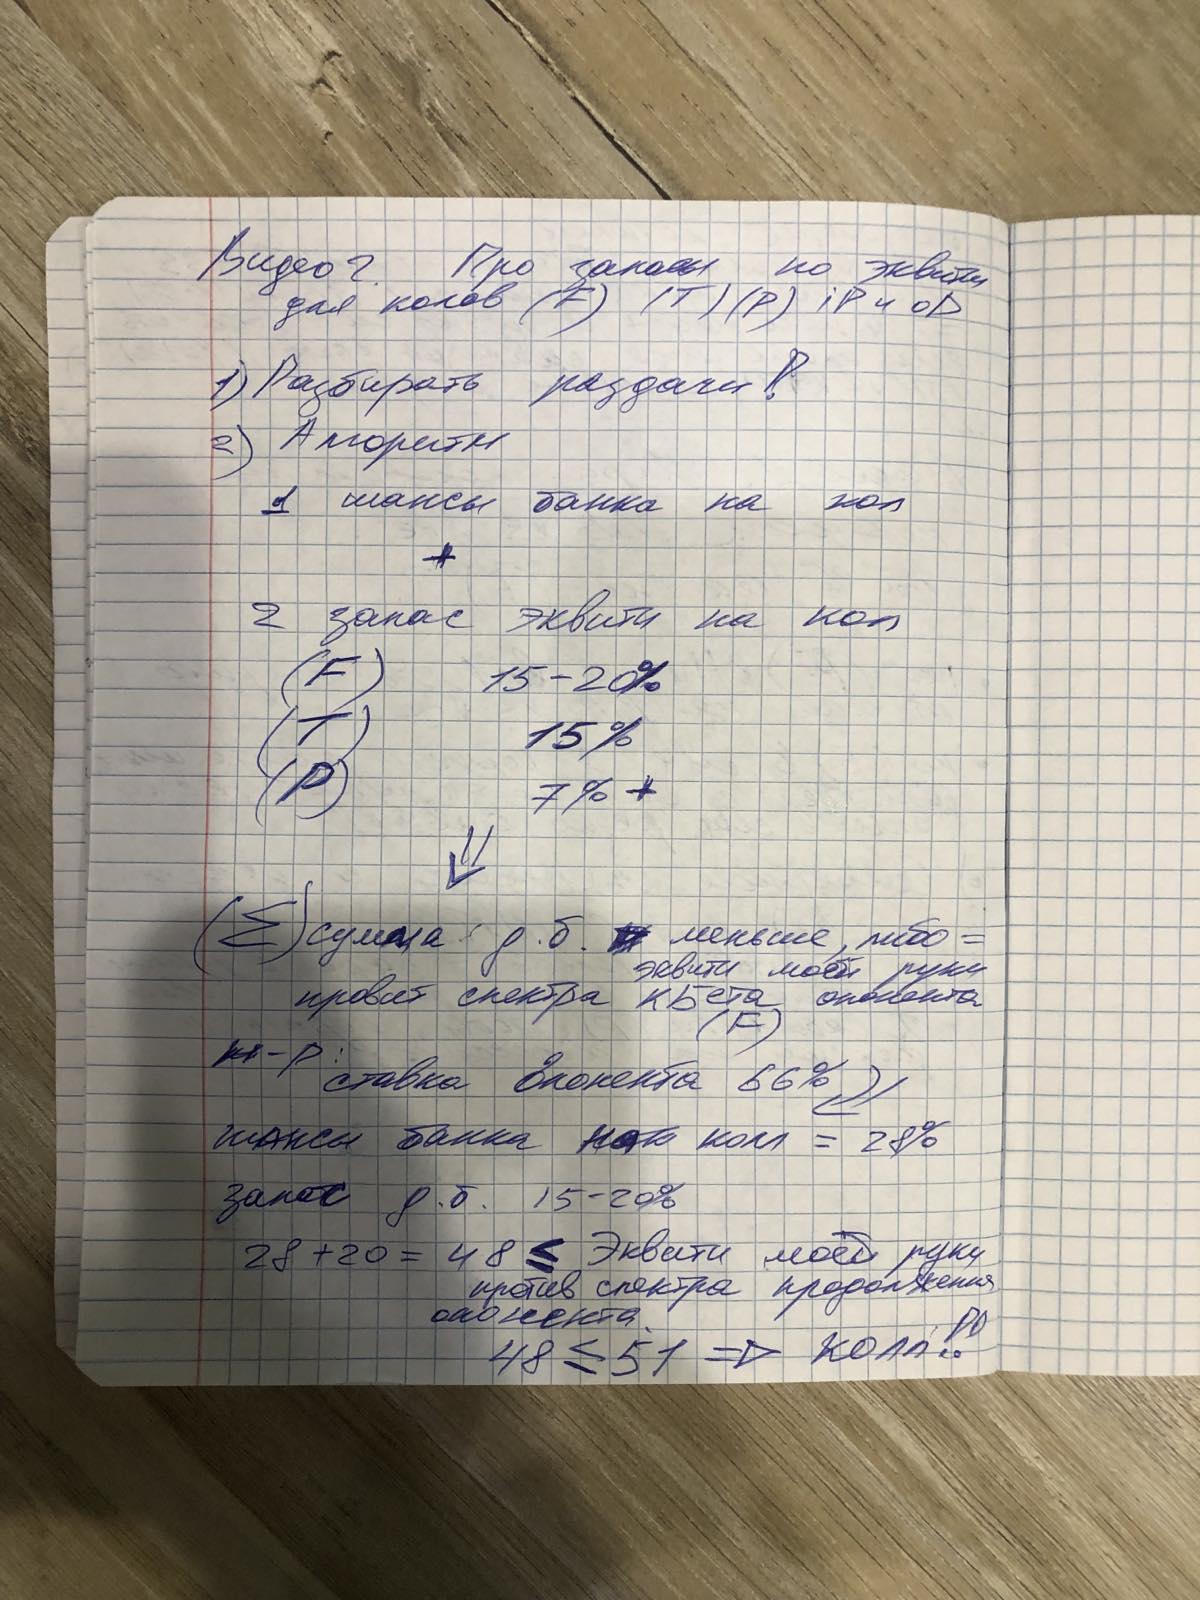 Видео 2. Про запасы по эквити
для колов (F) (T) (P) iP и oD
1) Разбирать раздачи!
2) Алгоритм
1 шансы банка на кол
+
2 запас эквити на кол
(F) 15-20%
(T) 15%
(P) 7% +
(Σ) сумма д.б. меньше, либо =
эквити моей руки
против спектра КБета опонента
(F)
н-р:
ставка опонента 66%
шансы банка на колл = 28%
запас д.б. 15-20%
28+20 = 48 ≤ Эквити моей руки
против спектра продолжения
опонента.
48 ≤ 51 => колл!!